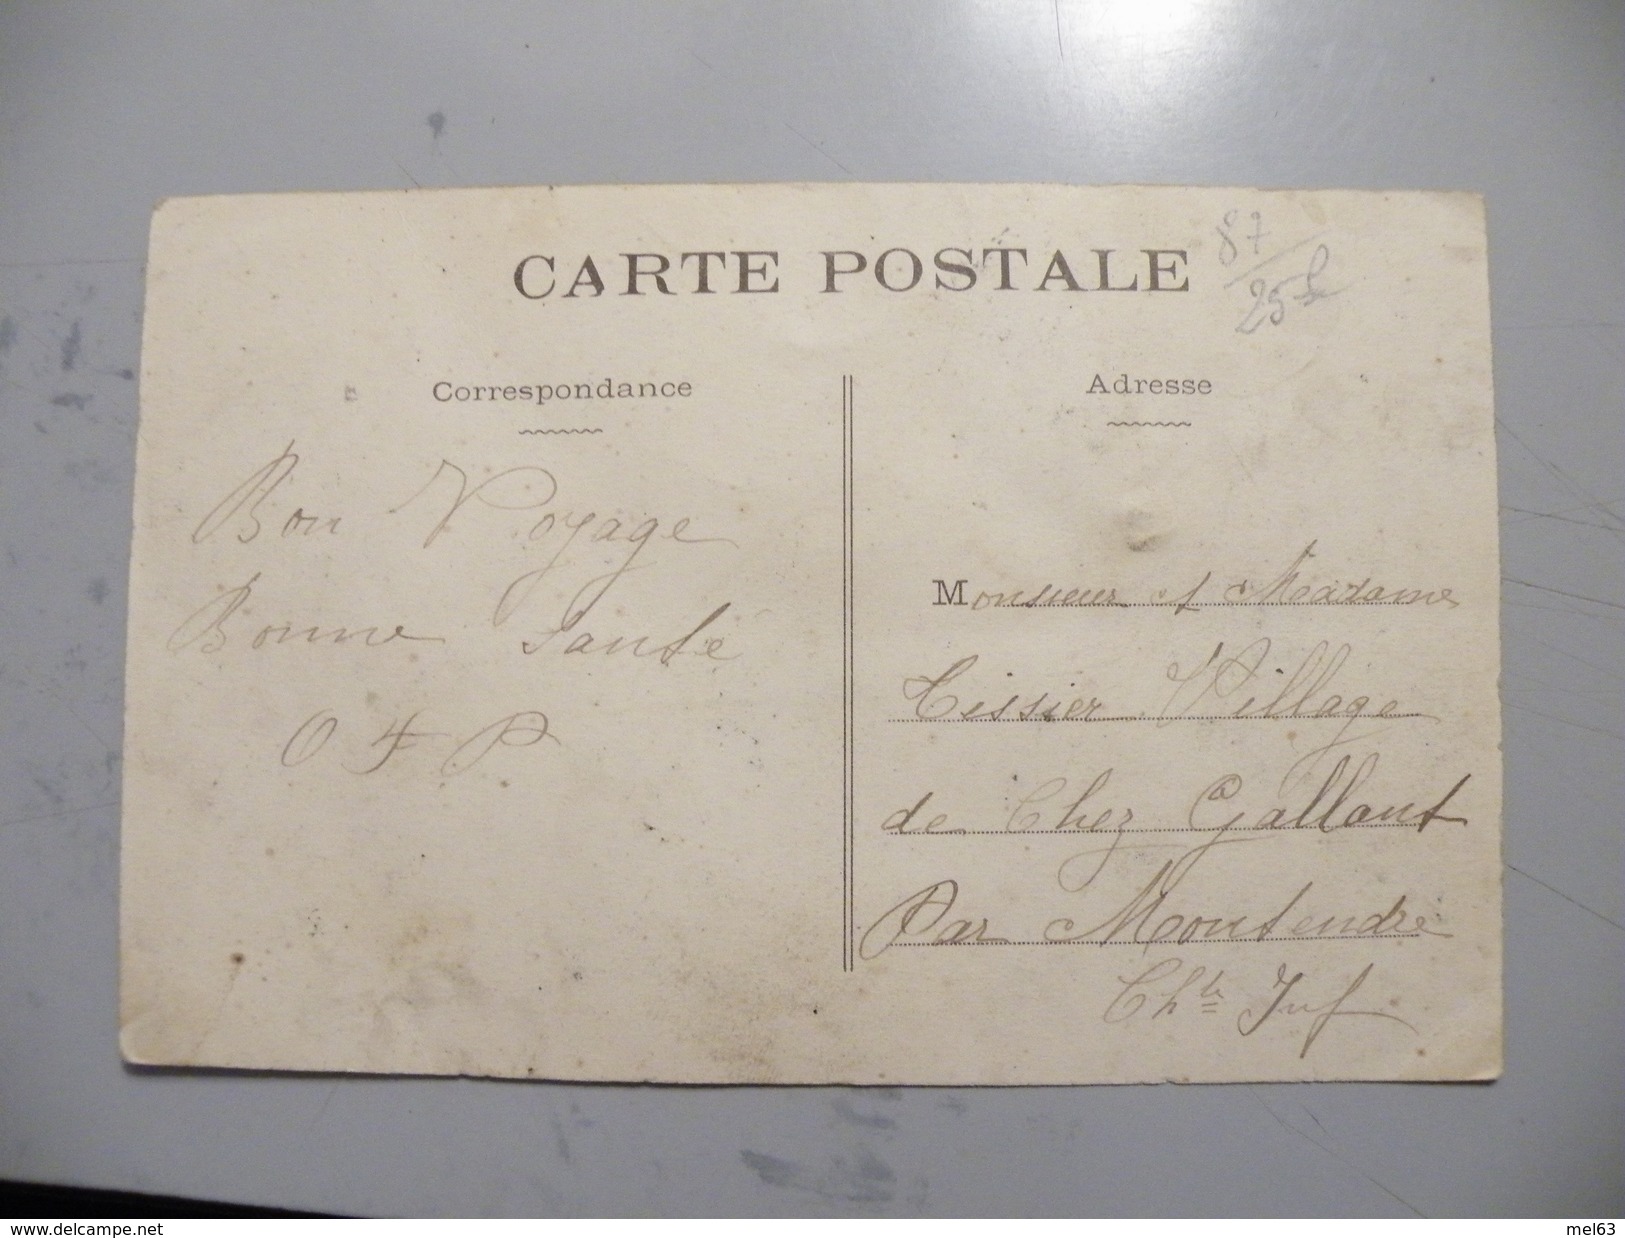 CARTE POSTALE
87
25
Correspondance
Bon Voyage
Bonne Santé
O F P
Adresse
Monsieur et Madame
Tissier Village
de Chez Gallant
Par Montendre
Chte Inf
www.delcampe.net
mel63